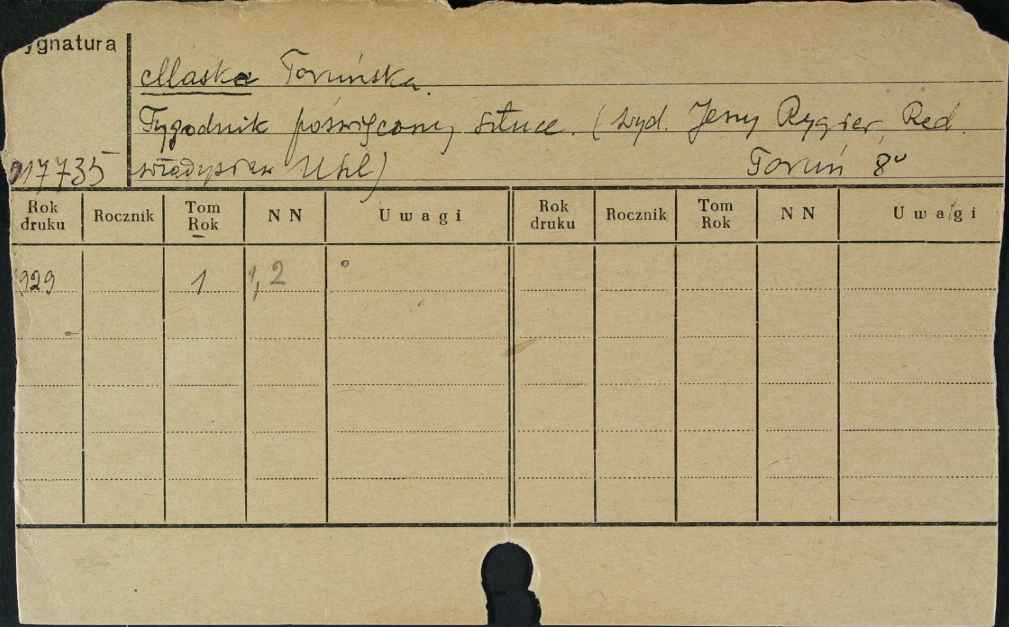 ygnatura
Maska Toruńska.
Tygodnik poświęcony sztuce. (Wyd. Jerzy Rygier, Red.
017735 Władysław Uhl) Toruń 8°
Rok druku Rocznik Tom Rok N N Uwagi Rok druku Rocznik Tom Rok N N Uwagi
929 1 1, 2